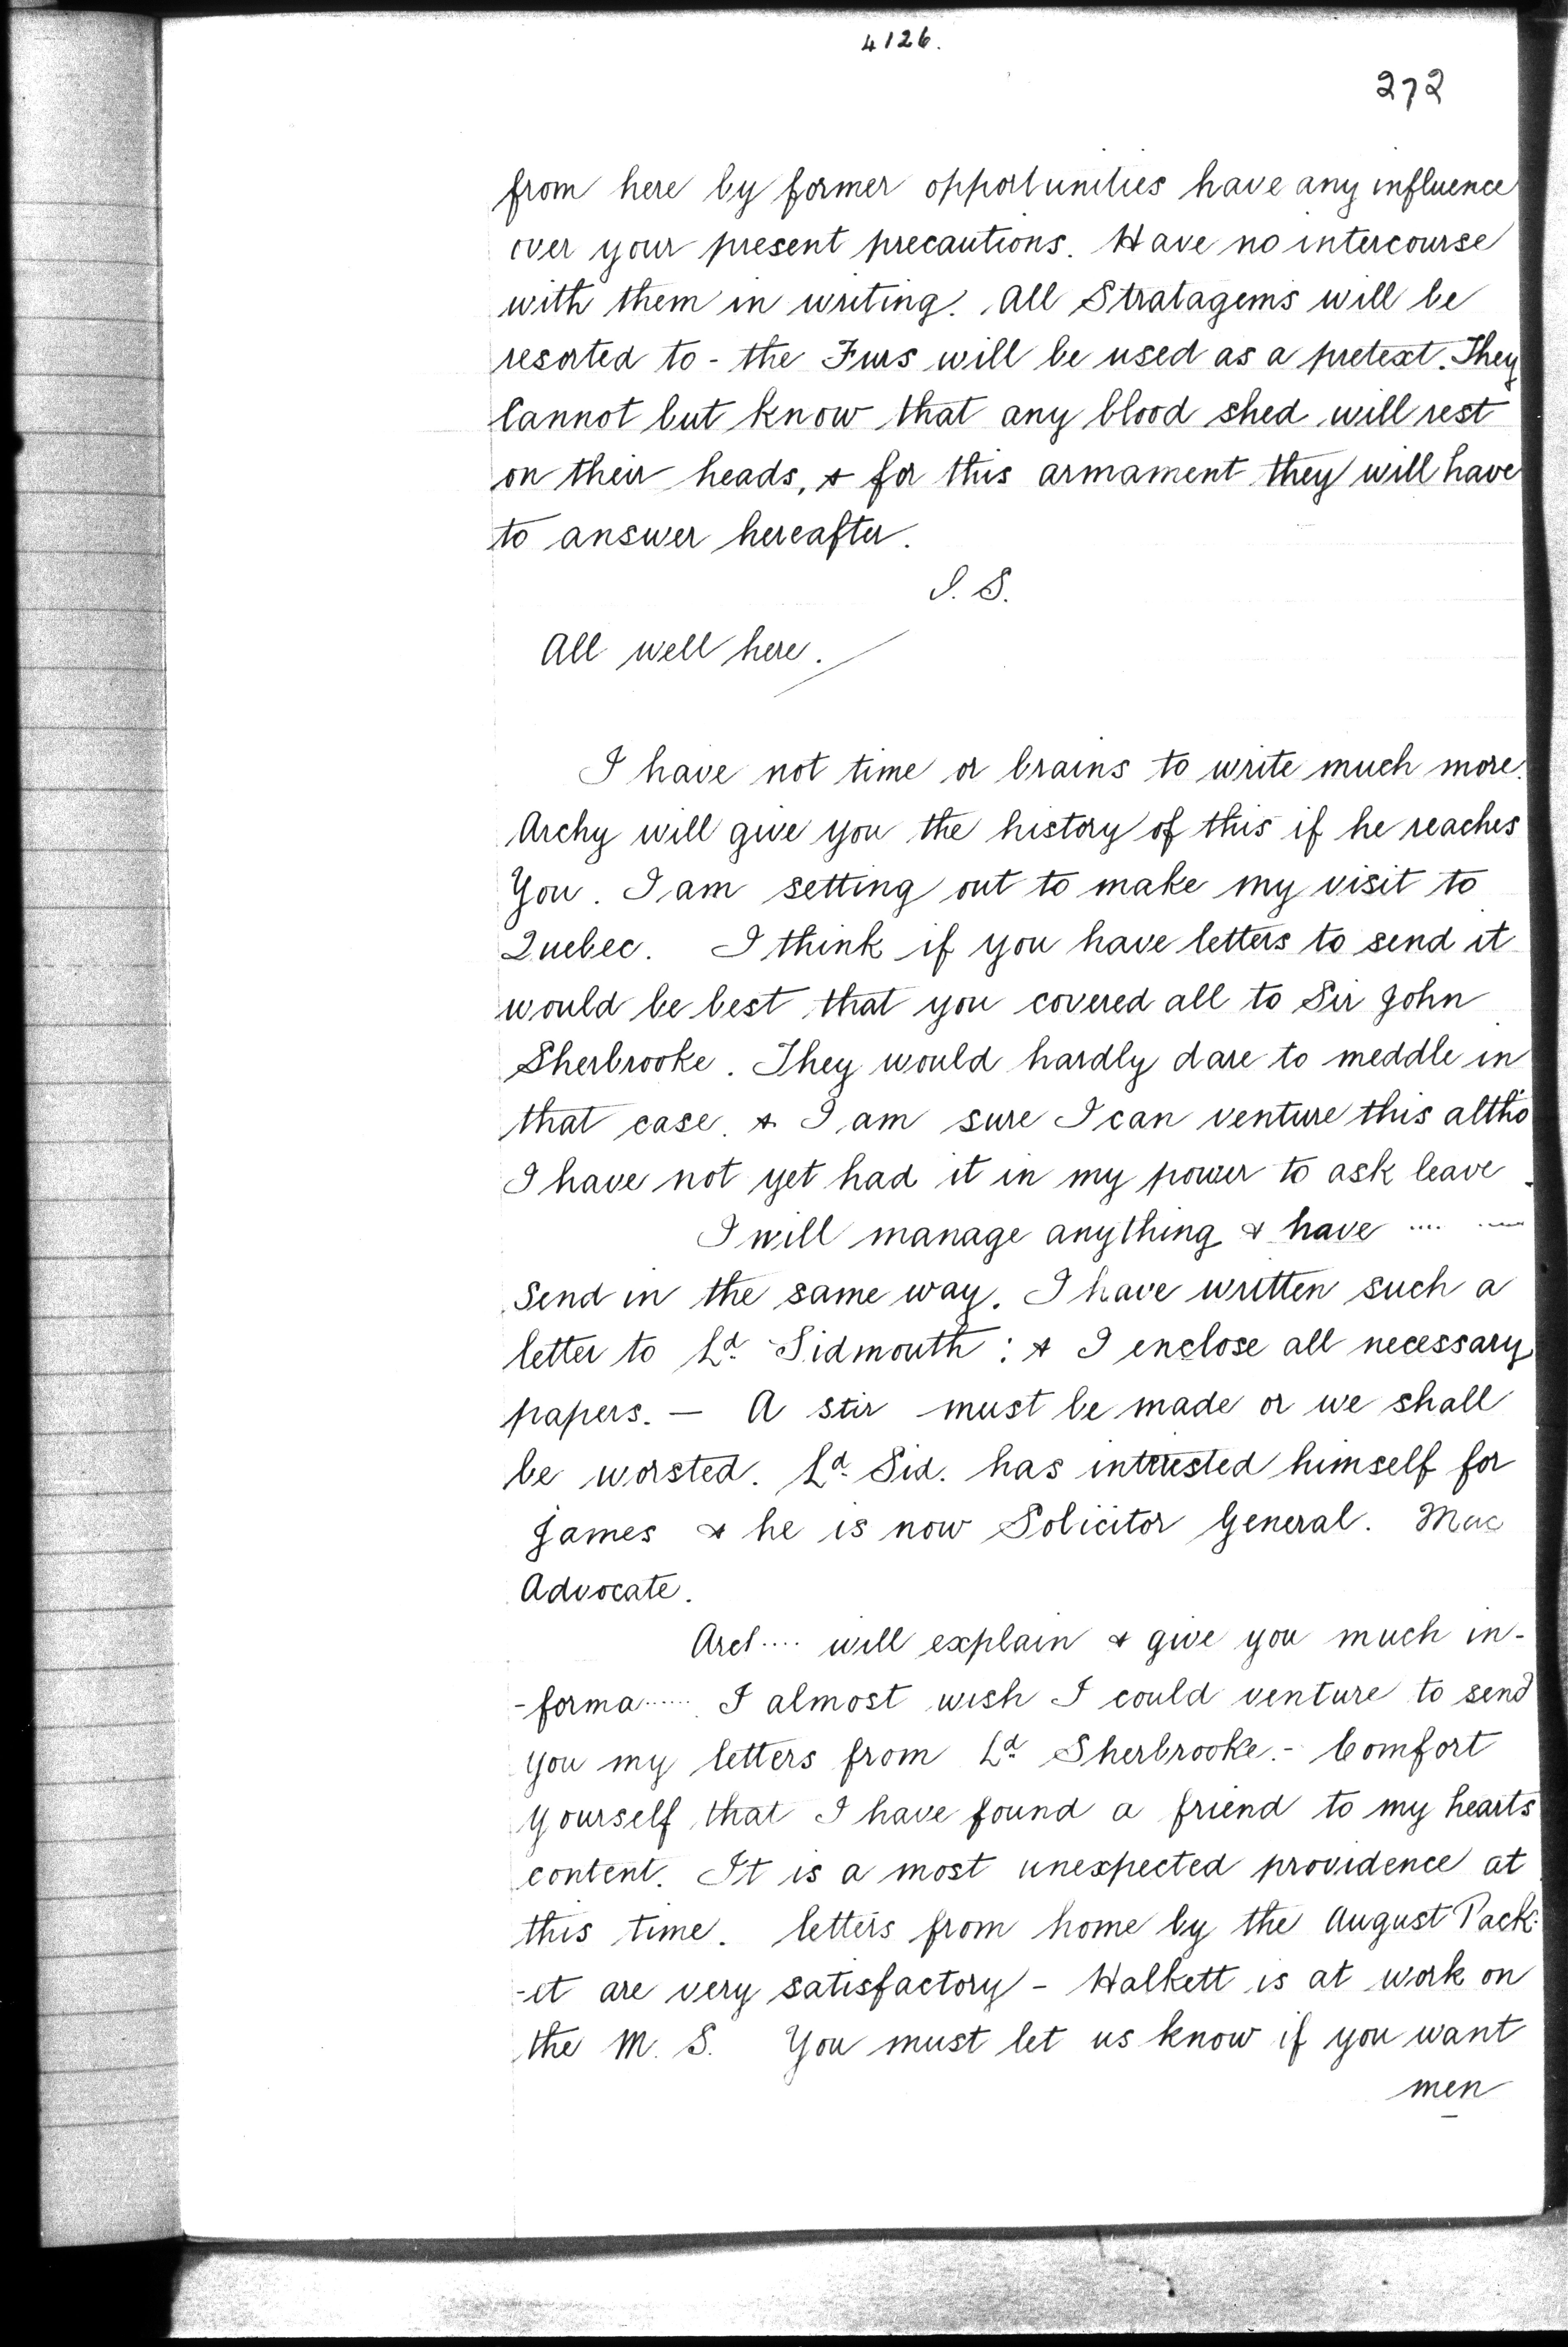 4126.
272
from here by former opportunities have any influence
over your present precautions. Have no intercourse
with them in writing. All Stratagems will be
resorted to - the Furs will be used as a pretext. They
Cannot but know that any blood shed will rest
on their heads, & for this armament they will have
to answer hereafter.
J. S.
All well here.
I have not time or brains to write much more.
Archy will give you the history of this if he reaches
You. I am setting out to make my visit to
Quebec. I think if you have letters to send it
would be best that you covered all to Sir John
Sherbrooke. They would hardly dare to meddle in
that case. & I am sure I can venture this altho
I have not yet had it in my power to ask leave.
I will manage anything & have .... ....
Send in the same way. I have written such a
letter to Ld. Sidmouth : & I enclose all necessary
papers. — A stir must be made or we shall
be worsted. Ld. Sid. has interested himself for
James & he is now Solicitor General. Mac
Advocate.
Arch.... will explain & give you much in-
-forma...... I almost wish I could venture to send
you my letters from Ld. Sherbrooke. - Comfort
yourself that I have found a friend to my hearts
content. It is a most unexpected providence at
this time. letters from home by the August Pack-
-et are very satisfactory - Halkett is at work on
the M. S. You must let us know if you want
men